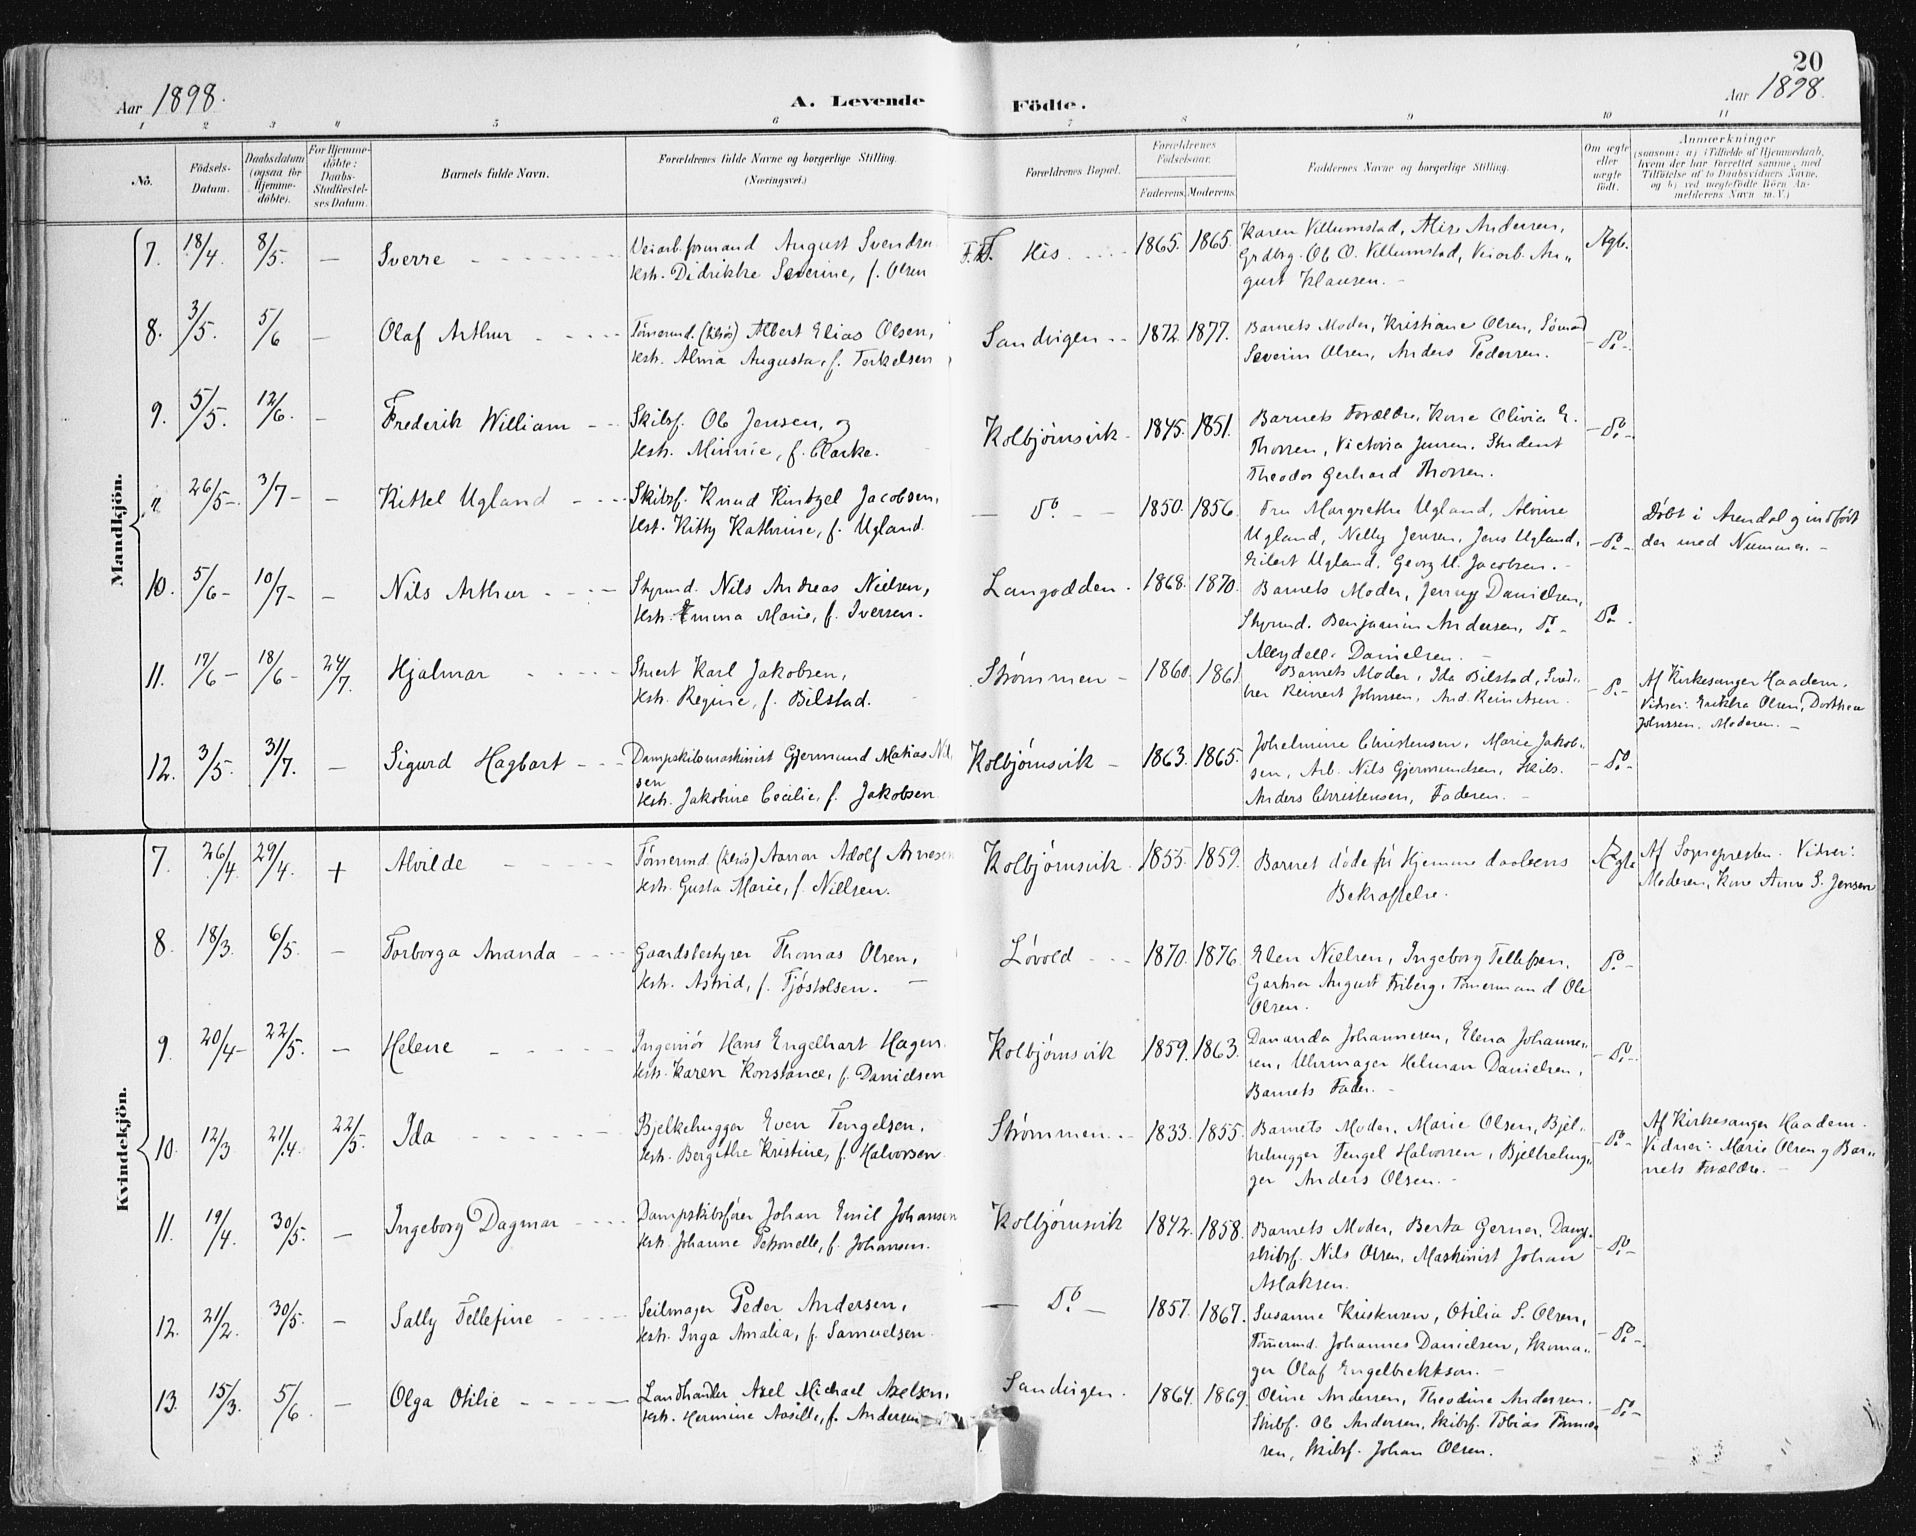 20
Aar 1898.
A. Levende Födte.
Aar 1898.
1 2 3 4 5 6 7 8 9 10 11
No.
Födsels-
Datum.
Daabsdatum
(ogsaa for
Hjemme-
döbte).
For Hjemme-
döbte:
Daabs-
Stadfæstel-
ses Datum.
Barnets fulde Navn.
Forældrenes fulde Navne og borgerlige Stilling.
(Næringsvei.)
Forældrenes Bopæl.
Forældrenes
Födselsaar.
Faderens. Moderens.
Faddernes Navne og borgerlige Stilling.
Om ægte
eller
uægte
födt.
Anmærkninger
(saasom: a) i Tilfælde af Hjemmedaab,
hvem der har forrettet samme, med
Tilföielse af to Daabsvidners Navne,
og b) ved uægtefödte Börn An-
melderens Navn m. V.)
Mandkjön.
7. 18/4 8/5 — Sverre
Veiarb.formand August Svendsen
Hstr. Didrikke Severine, f. Olsen
His. 1865. 1865.
Karen Villumstad, Alise Andersen,
Grdbrg. Ole O. Villumstad, Veiarb. Au„
gust Klausen. —
Ægte.
8. 3/5. 5/6 — Olaf Arthur
Tømermd. (tilsös) Albert Elias Olsen,
Hstr. Alma Augusta, f. Terkelsen
Sandvigen 1872. 1877.
Barnets Moder, Kristiane Olsen, Sömand
Severin Olsen, Anders Pedersen.
— Do —
9. 5/5. 12/6. — Frederik William
Skibsf. Ole Jensen, og
Hstr. Minnie, f. Clarke.
Kolbjørnsvik. 1845. 1851.
Barnets Forældre, Kone Olivia E.
Thorsen, Victoria Jensen. Student
Theodor Gerhard Thorsen.
— Do —
" 26/5 3/7 — Kittel Ugland
Skibsf. Knud Kintzel Jacobsen,
Hst. Kitty Kathrine, f. Ugland.
— Do — 1850. 1856.
Fru Margrethe Ugland, Alvine
Ugland, Nelly Jensen, Jens Ugland,
Eilert Ugland. Georg U. Jacobsen. —
— Do —
Döbt i Arendal og indfört
der med Nummer. —
10. 5/6 10/7 — Nils Arthur
Styrmd. Nils Andreas Nielsen,
Hstr. Emma Marie, f. Iversen.
Langodden. 1868. 1870.
Barnets Moder, Jenny Danielsen,
Styrmd. Benjamin Andersen, Do —
Meydell Danielsen. —
Do.
11. 17/6 18/6 24/7. Hjalmar
Stuert Karl Jakobsen,
Hstr. Regine, f. Bilstad.
Strømmen 1860. 1861
Barnets Moder, Ida Bilstad, Sned„
ker Reinert Johnsen, And. Reinertsen.
— Do —
Af Kirkesanger Haadem.
Vidner: Enkefru Olsen, Dorthea
Johnssen. Moderen. —
12. 3/5. 31/7. — Sigurd Hagbart
Dampskibsmaskinist Gjermund Matias Nil
sen
Hstr. Jakobine Cecilie, f. Jakobsen
Kolbjørnsvik 1863. 1865.
Johelmine Christensen, Marie Jakob„
sen, Arb. Nils Gjermundsen, Skibs.
Anders Christensen, Faderen. —
— Do —
Kvindekjön.
7. 26/4. 29/4. + Alvilde
Tömermd. (tilsös) Aanon Adolf Arnesen
Hstr. Gusta Marie, f. Nielsen.
Kolbjørnsvik. 1855. 1859.
Barnet döde för Hjemmedaabens
Bekræftelse.
Ægte
Af Sognepresten. Vidner:
Moderen, Kone Anne S. Jensen
8. 18/3. 6/5. — Torborga Amanda
Gaardsbestyrer Thomas Olsen,
Hstr. Astrid, f. Tjöstolsen. —
Løvold 1870. 1876.
Elen Nielsen, Ingeborg Tellefsen,
Gartner August Friberg, Tömermand Ole
Olsen.
Do —
9. 20/4 22/5. — Helene
Ingeniör Hans Engelhart Hagen.
Hstr. Karen Konstance, f. Danielsen
Kolbjørnsvik 1859. 1863.
Dananda Johannesen, Elena Johanne„
sen, Uhrmager Helman Danielsen,
Barnets Fader. —
— Do —
10. 12/3 21/4. 22/5. Ida
Bjelkehugger Even Tengelsen,
Hstr. Bergithe Kristine, f. Halvorsen.
Strømmen. 1833. 1855.
Barnets Moder, Marie Olsen, Bjel„
kehugger Tengel Halvorsen, Bjelkehug„
ger Anders Olsen. —
— Do —
Af Kirkesanger Haadem.
Vidner: Marie Olsen og Bar„
nets Forældre. —
11. 19/4. 30/5. — Ingeborg Dagmar
Dampskibsförer Johan Emil Johansen
Hstr. Johanne Petronelle, f. Johansen.
Kolbjørnsvik 1842. 1858.
Barnets Moder, Berta Gerner, Damp„
skibsf. Nils Olsen, Maskinist Johan
Aslaksen.
— Do —
12. 21/2. 30/5. — Sally Tellefine
Seilmager Peder Andersen,
Hstr. Inga Amalia, f. Samuelsen.
— Do — 1857. 1867.
Susanne Kristensen, Otilia S. Olsen,
Tömermd. Johannes Danielsen, Skoma„
ger Olaf Engelbrektson. —
— Do —
13. 15/3. 5/6 — Olga Otilie
Landhandler Axel Michael Axelsen,
Hstr. Hermine Aasille, f. Andersen
Sandvigen. 1864. 1869.
Oline Andersen, Theodine Andersen.
Skibsf. Ole Andersen, Skibsf. Tobias Tönne
sen, Skibsf. Johan Olsen.
— Do —